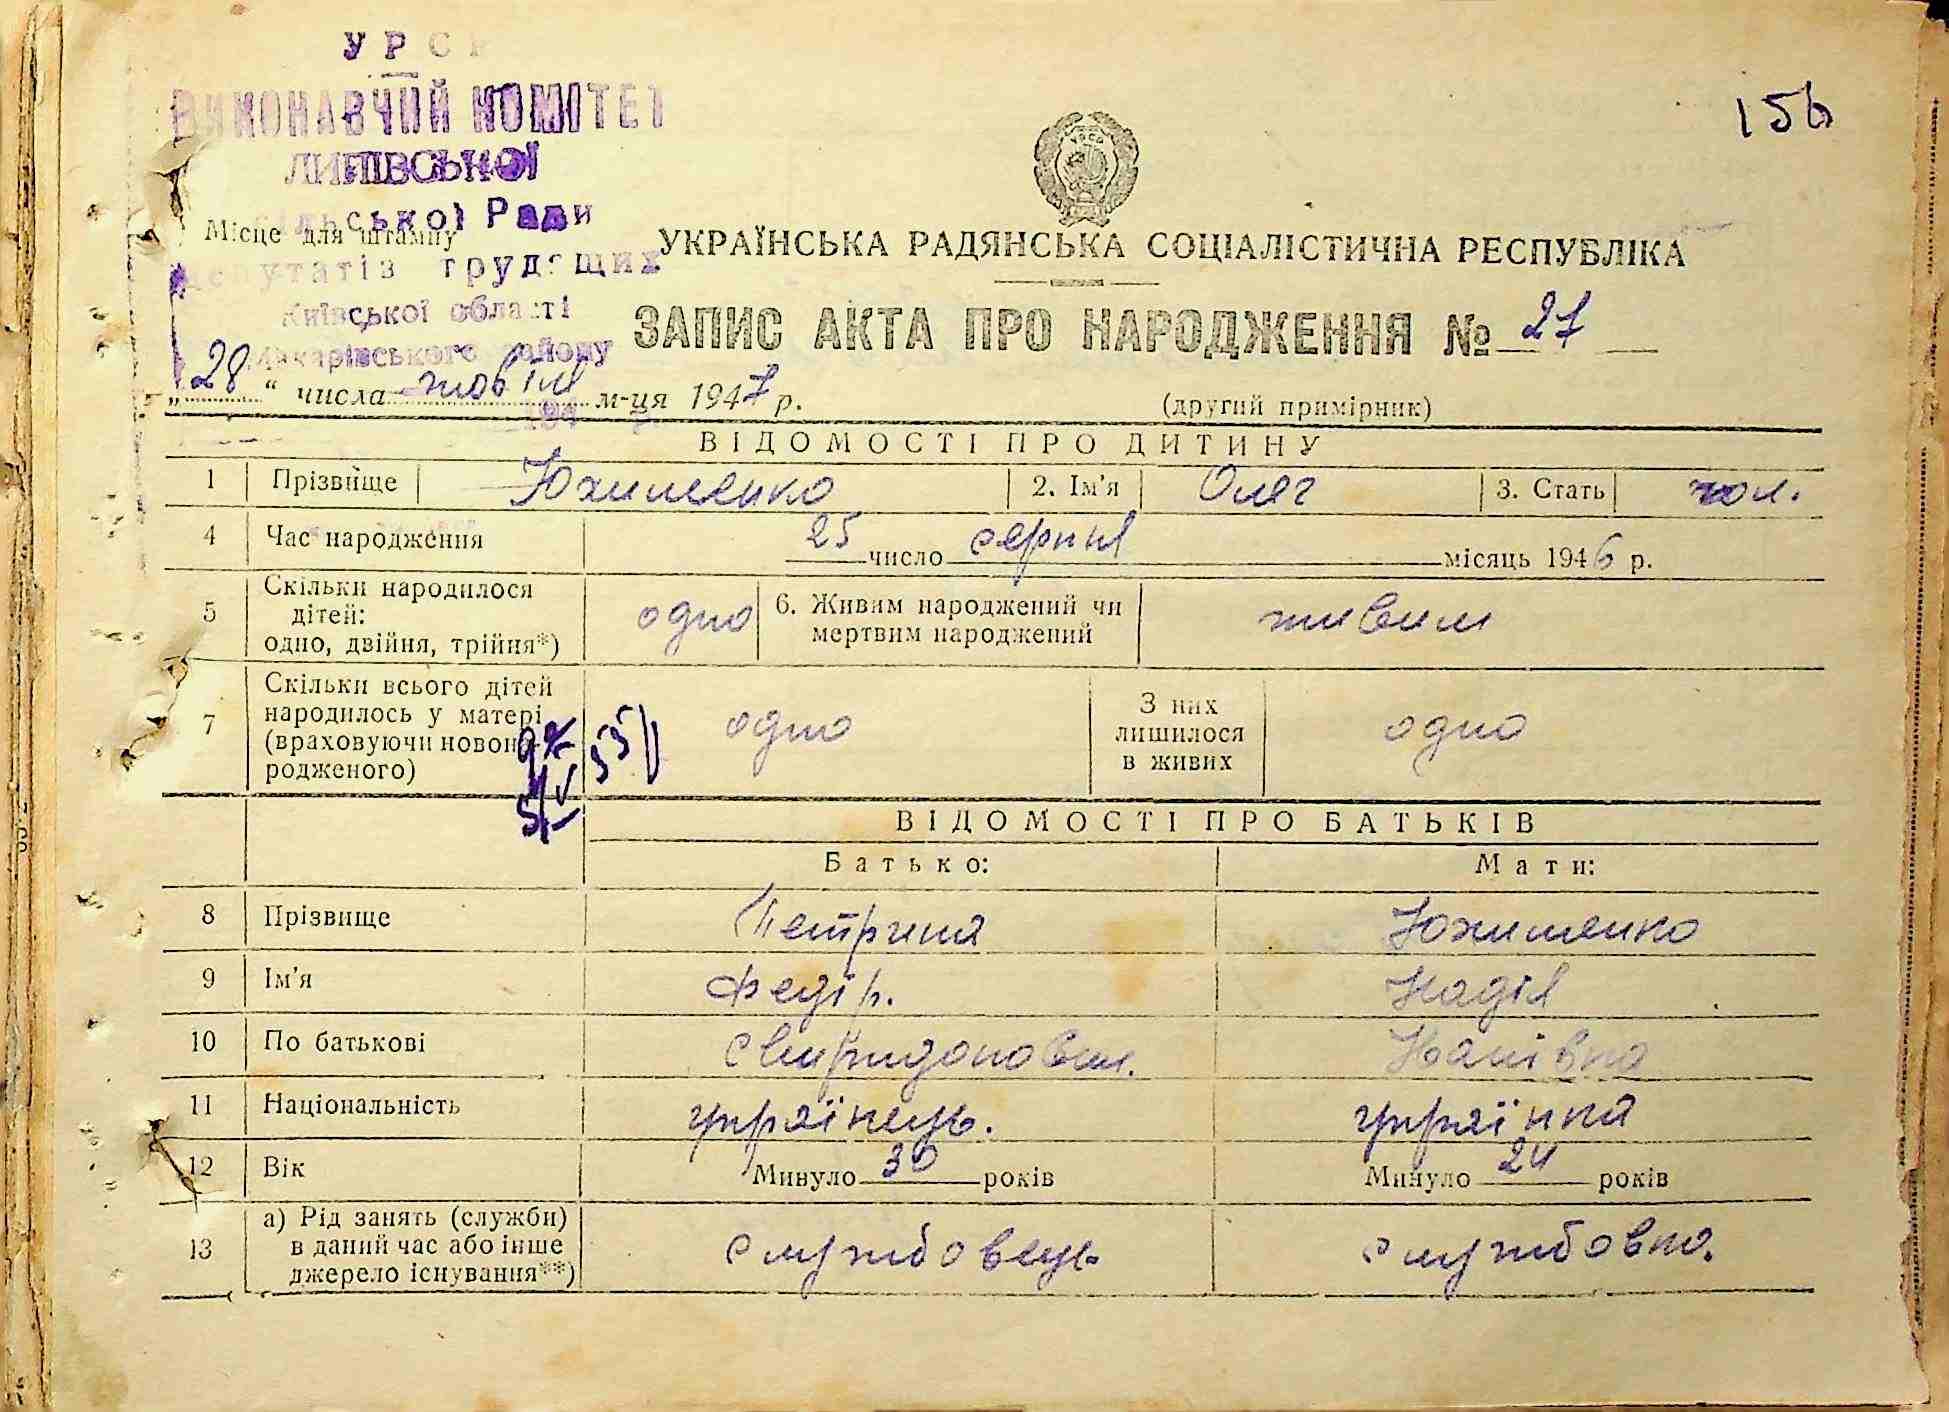 УРСР
ВИКОНАВЧИЙ КОМІТЕТ
ЛИПІВСЬКОЇ
сільської Ради
Місце для штампу
депутатів трудящих
Київської області
Макарівського району
156
УКРАЇНСЬКА РАДЯНСЬКА СОЦІАЛІСТИЧНА РЕСПУБЛІКА
ЗАПИС АКТА ПРО НАРОДЖЕННЯ № 27
„28“ числа жовтня м-ця 1947 р.
(другий примірник)
ВІДОМОСТІ ПРО ДИТИНУ
1 Прізвище Юхименко 2. Ім'я Олег 3. Стать чол.
4 Час народження 25 число серпня місяць 1946 р.
5 Скільки народилося дітей: одно, двійня, трійня*) одно 6. Живим народжений чи мертвим народжений живим
7 Скільки всього дітей народилось у матері (враховуючи новонародженого) одно З них лишилося в живих одно
ВІДОМОСТІ ПРО БАТЬКІВ
Батько: Мати:
8 Прізвище Петрина Юхименко
9 Ім'я Федір. Надія
10 По батькові Свиридонович. Іванівна
11 Національність українець. українка
12 Вік Минуло 30 років Минуло 24 років
13 а) Рід занять (служби) в даний час або інше джерело існування**) службовець службовка.